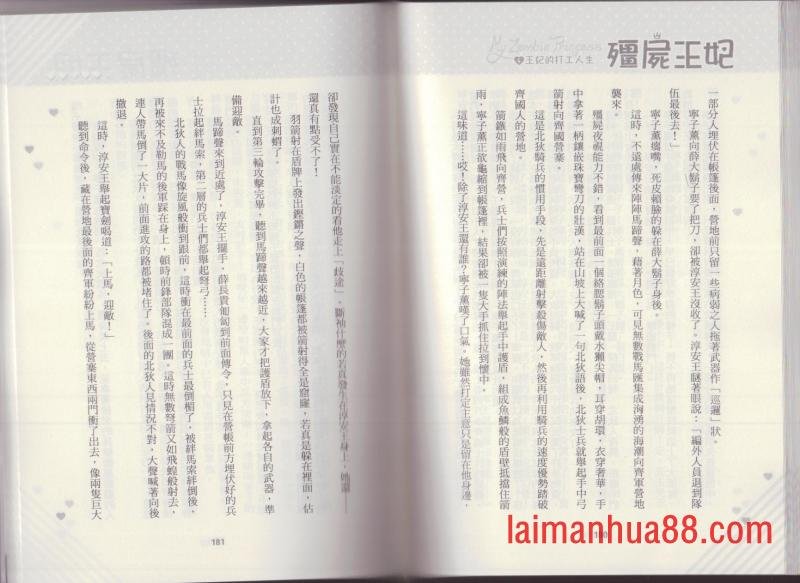 My Zombie Princess
王妃的打工人生
殭屍王妃
一部分人埋伏在帳篷後面,營地前只留一些病弱之人拖著武器作「巡邏」狀。
寧子薰向薛大鬍子要了把刀,卻被淳安王沒收了。淳安王瞇著眼說:「編外人員退到隊
伍最後去!」
寧子薰癟嘴,死皮賴臉的躲在薛大鬍子身後。
這時,不遠處傳來陣陣馬蹄聲,藉著月色,可見無數戰馬匯集成洶湧的海潮向齊軍營地
襲來。
殭屍夜視能力不錯,看到最前面一個絡腮鬍子頭戴水獺尖帽,耳穿胡環,衣穿奢華,手
中拿著一柄鑲嵌珠寶彎刀的壯漢,站在山坡上大喊了一句北狄語後,北狄士兵就舉起手中弓
箭射向齊國營寨。
這是北狄騎兵的慣用手段,先是遠距離射擊殺傷敵人,然後再利用騎兵的速度優勢踏破
齊國人的營地。
箭鏃如雨飛向齊營,兵士們按照演練的陣法舉起手中護盾,組成魚鱗般的盾壁抵擋住箭
雨,寧子薰正欲龜縮到帳篷裡,結果卻被一隻大手抓住拉到懷中。
這味道……哎!除了淳安王還有誰?寧子薰嘆了口氣。她雖然打定主意只是留在他身邊,
卻發現自己實在不能淡定的看他走上「歧途」。斷袖什麼的若真發生在淳安王身上,她還
還真有點受不了!
羽箭射在盾牌上發出鏗鏘之聲,白色的帳篷都被箭射得全是窟窿,若真是躲在裡面,估
計也成刺蝟了。
直到第三輪攻擊完畢,聽到馬蹄聲越來越近,大家才把護盾放下,拿起各自的武器,準
備迎敵。
馬蹄聲來到近處了,淳安王擺手,薛長貴匍匐到前面傳令,只見在營帳前方埋伏好的兵
士拉起絆馬索,第二層的兵士們都舉起弩弓……
北狄人的戰馬像旋風般衝到跟前,這時衝在最前面的兵士最倒楣了,被絆馬索絆倒後,
再被來不及勒馬的後軍踩在身上,頓時前鋒部隊混成一團。這時無數弩箭又如飛蝗般射去,
連人帶馬倒了一大片,前面進攻的路都被堵住了。後面的北狄人見情況不對,大聲喊著向後
撤退。
這時,淳安王舉起寶劍喝道:「上馬,迎敵!」
聽到命令後,藏在營地最後面的齊軍紛紛上馬,從營寨東西兩門衝了出去,像兩隻巨大
181
laimanhua88.com